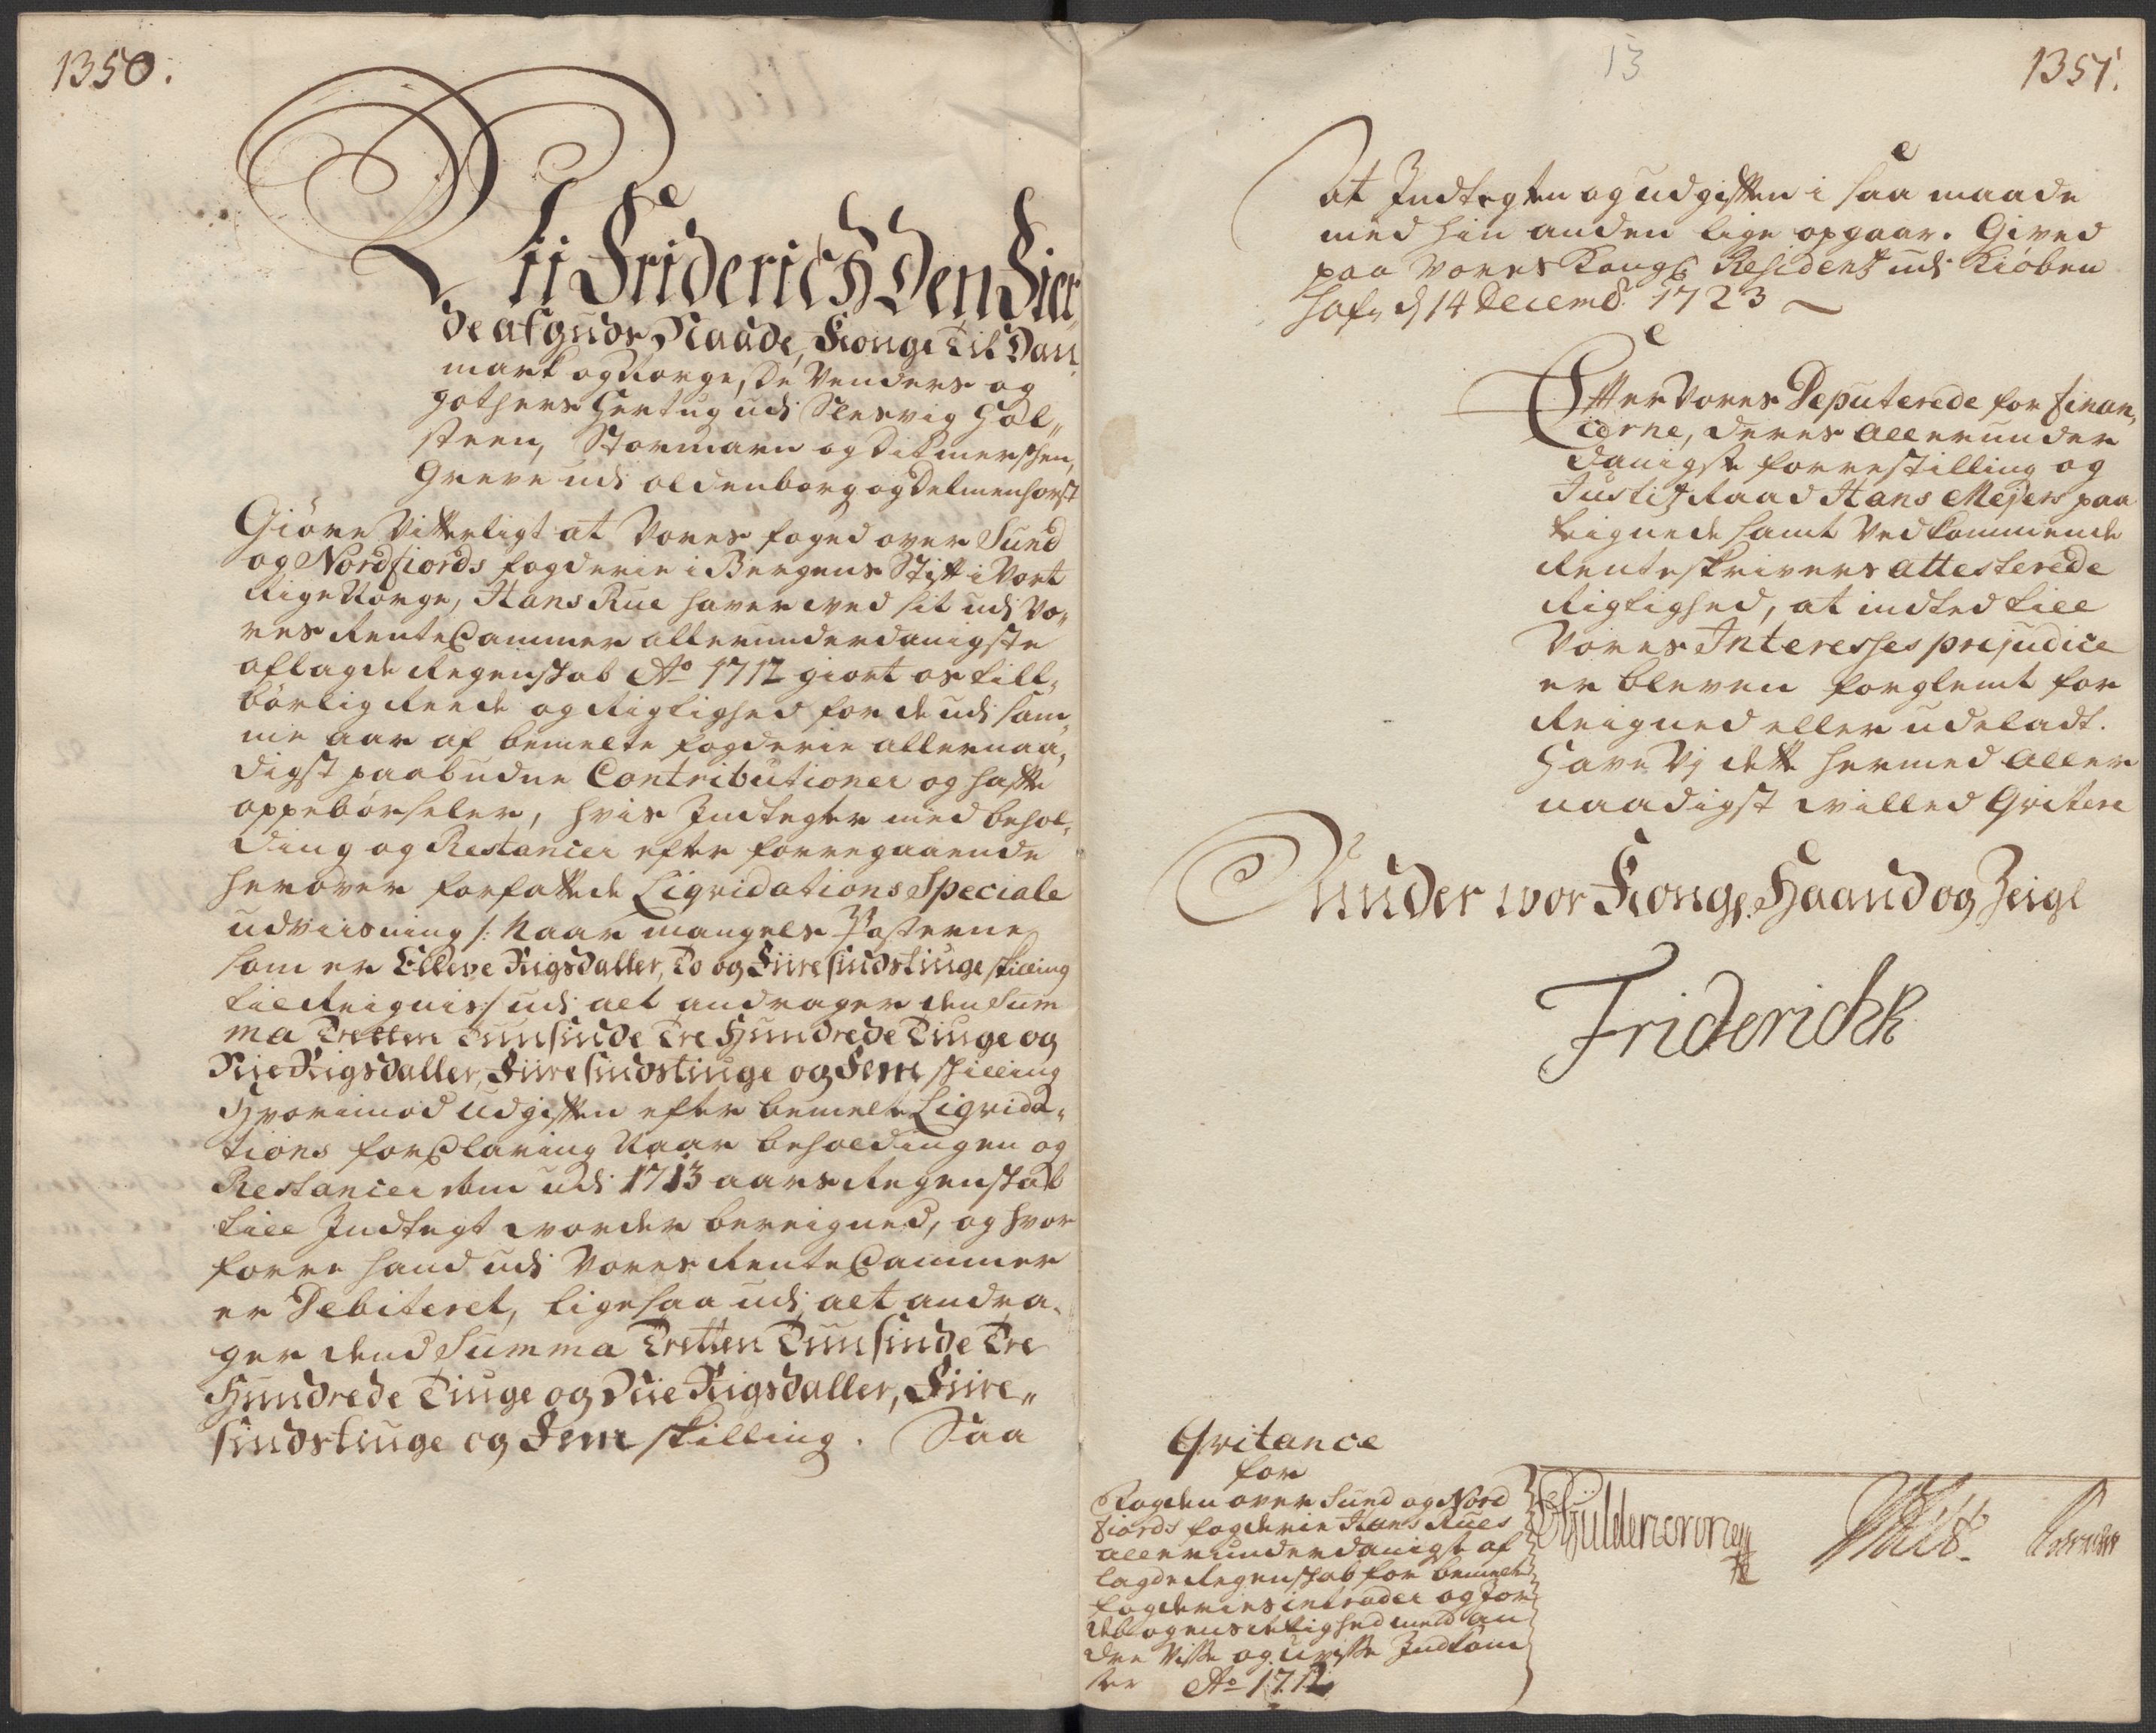 1350.
Vii Friderich Den Fier
de af Guds Naade, Konge til Dan
mark og Norge, de Venders og
Gothers Hertug udi Slesvig Hol„
steen, Stormarn og Ditmerschen,
Greve udi Oldenborg og Delmenhorst
Giöre Vitterligt at Vores foged over Sund
og Nordfiords fogderie i Bergens Stift i Vort
Rige Norge, Hans Rue haver ved sit udi Vo„
res RenteCammer allerunderdanigste
aflagde Regenskab Ao 1712 giort os till„
börlig Reede og Rigtighed for de udi sam„
me aar af bemelte fogderie allernaa„
digst paabudne Contributioner og hafte
oppebörseler, hvis Indtegter med behol„
ding og Restancier efter forregaaende
herover forfattede Liqvidations Speciale
udviisning /: Naar mangels Posterne
som er Elleve Rigsdaller, To og Fiiresindstiuge skilling
tilreignis :/ udi alt andrager den Sum
ma Tretten Tuusinde Tre Hundrede Tiuge og
Nie Rigsdaller, Fiiresindstiuge og Fem skilling
Hvorimod Udgiften efter bemelte Liqvida„
tions forClaring Naar beholdingen og
Restancier som udi 1713 aars Regenskab
till Indtegt vorder bereigned, og hvor
forre hand udi Vores RenteCammer
er Debiteret, ligesaa udi alt andra„
ger dend Summa Tretten Tuusinde Tre
Hundrede Tiuge og Nie Rigsdaller, Fiire„
sindstiuge og Fem skilling. Saa
13
1351.
at Indtegten og udgiften i saa maade
med hin anden lige opgaar. Gived
paa Vores Kongl. Residentz udi Kiöben
hafn d 14 Decemb. 1723
Efter Vores Deputerede for finan„
cerne, deres allerunder
danigste forrestilling og
Justitz Raad Hans Mejers paa
teignede samt Vedkommende
Renteskrivers attesterede
Rigtighed, at indted till
Vores Interesses prejudice
er bleven forglemt for
Reigned eller udeladt.
Have Vj dette hermed aller
naadigst villed Qvitere
Under vor Kongl. Haand og Zeigl
Friderich R
Qvitance
for
Fogden over Sund og Nord
fiords fogderie Hans Rues
allerunderdanigst af
lagde Regenskab for bemelte
fogderies intrader og Jor
debogens rettighed med an
dre Visse og Uvisse Indkom
ster Ao 1712
Güldencrone